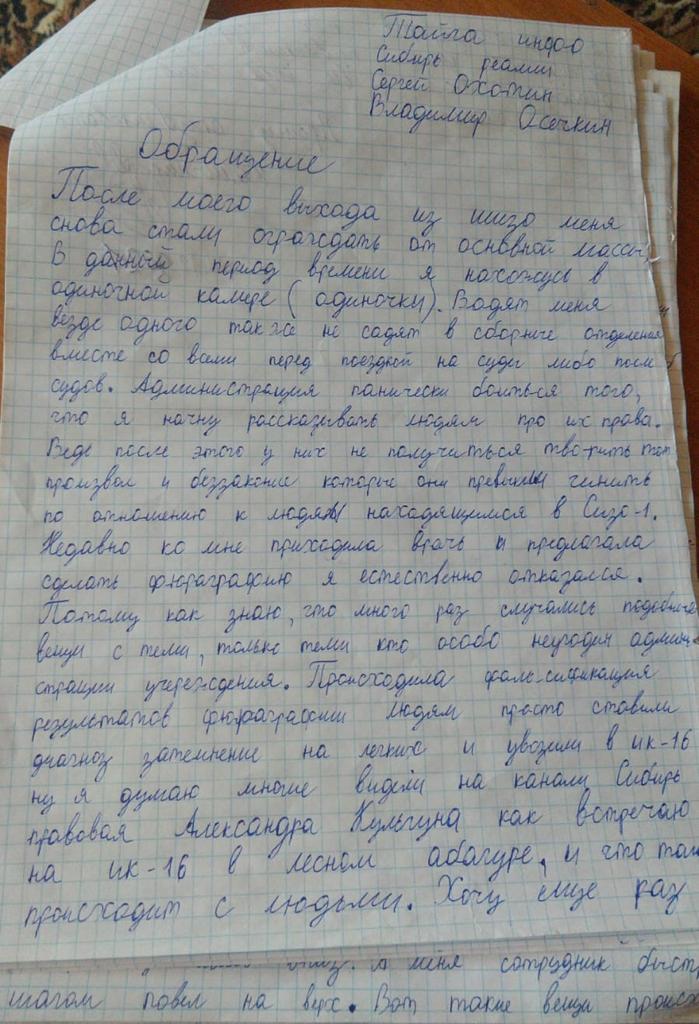 Тайга инфо
Сибирь реалии
Сергей Охотин
Владимир Осечкин
Обращение
После моего выхода из шизо меня
снова стали ограждать от основной массы.
В данный период времени я нахожусь в
одиночной камере (одиночки). Водят меня
везде одного также не садят в сборные отделения
вместе со всеми перед поездкой на суды либо после
судов. Администрация панически боиться того,
что я начну рассказывать людям про их права.
Ведь после этого у них не получиться творить тот
произвол и беззаконие которые они превыкли чинить
по отношению к людям находящимся в Сизо-1.
Недавно ко мне приходила врач и предлагала
сделать флюраграфию я естественно отказался.
Потому как знаю, что много раз случались подобные
вещи с теми, только теми кто особо неугоден админи-
страции учереждения. Происходила фальсификация
результатов флюраграфии людям просто ставили
диагноз затемнение на легких и увозили в ик-16
ну я думаю многие видели на канали Сибирь
правовая Александра Кульгуна как встречаю
на ик-16 в лесном абагуре, и что там
происходит с людьми. Хочу еще раз
А меня сотрудник быстр
шагом повел на верх. Вот такие вещи происх